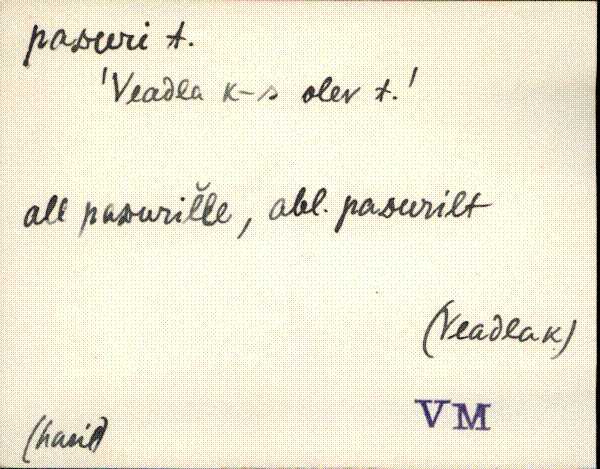 pasuri t.
'Veadla k-s olev t.'
all pasurille, abl. pasurilt
(Veadla k)
VM
(haril)